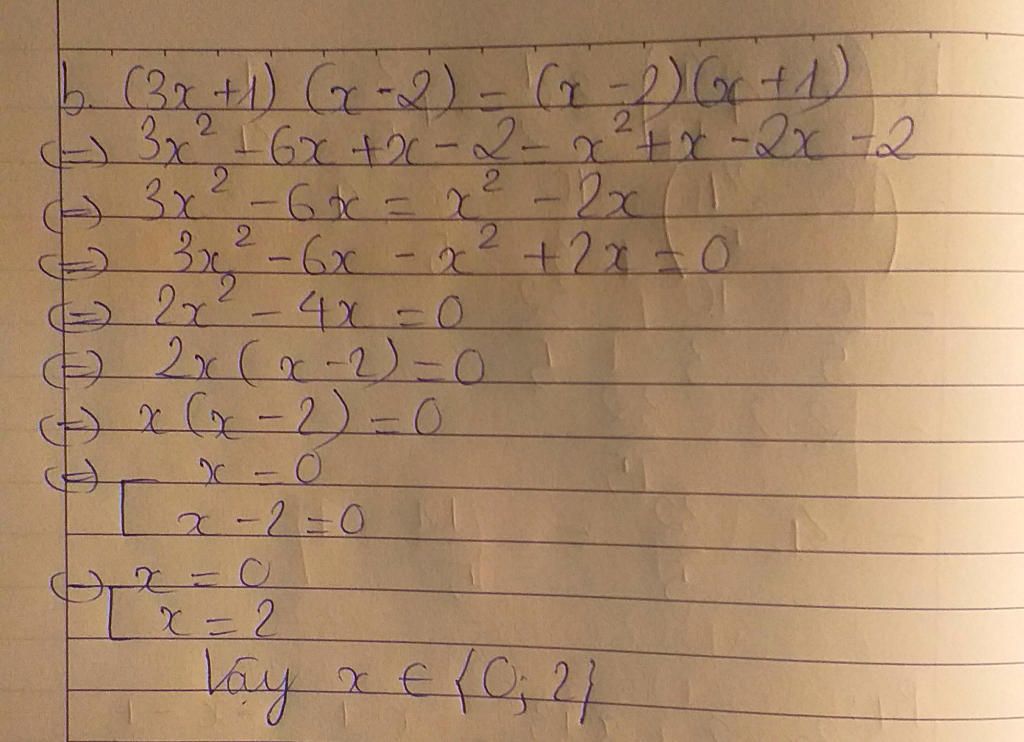 b. (3x+1) (x-2) = (x-2)(x+1)
(=) 3x² - 6x + x - 2 = x² + x - 2x - 2
(=) 3x² - 6x = x² - 2x
(=) 3x² - 6x - x² + 2x = 0
(=) 2x² - 4x = 0
(=) 2x (x-2) = 0
(=) x (x-2) = 0
(=) [ x = 0
x - 2 = 0
(=) [ x = 0
x = 2
Vậy x ∈ {0; 2}